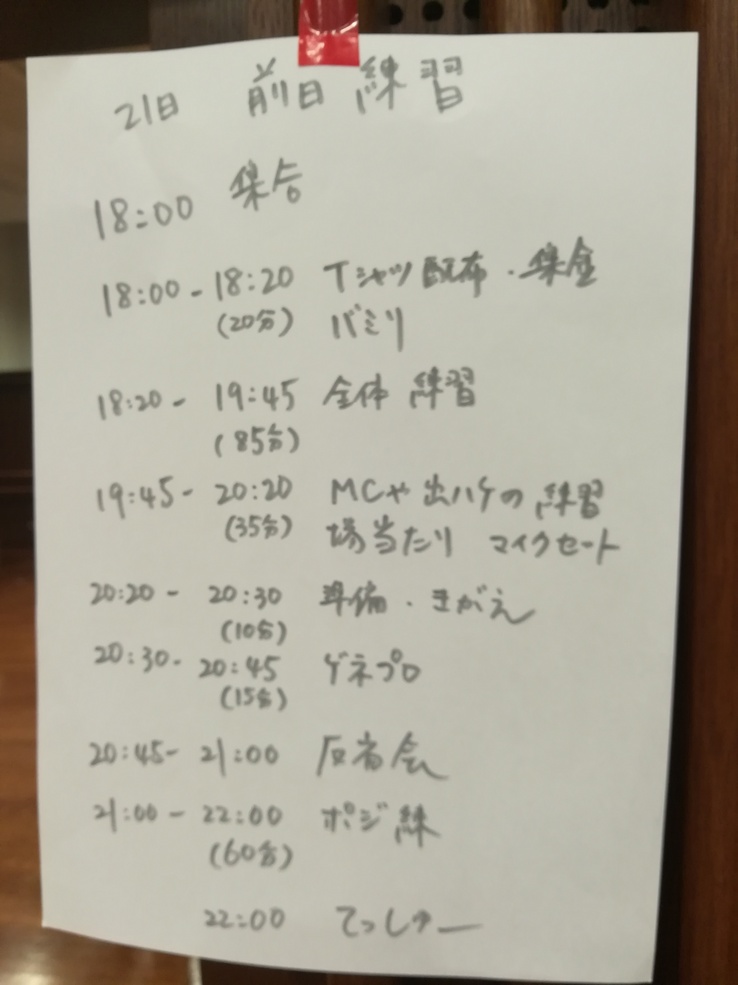 21日 前日練習
18:00 集合
18:00 - 18:20 Tシャツ配布・集金
(20分) バミリ
18:20 - 19:45 全体 練習
(85分)
19:45 - 20:20 MCや出ハケの練習
(35分) 場当たり マイクセート
20:20 - 20:30 準備・きがえ
(10分)
20:30 - 20:45 ゲネプロ
(15分)
20:45 - 21:00 反省会
21:00 - 22:00 ポジ練
(60分)
22:00 てっしゅー